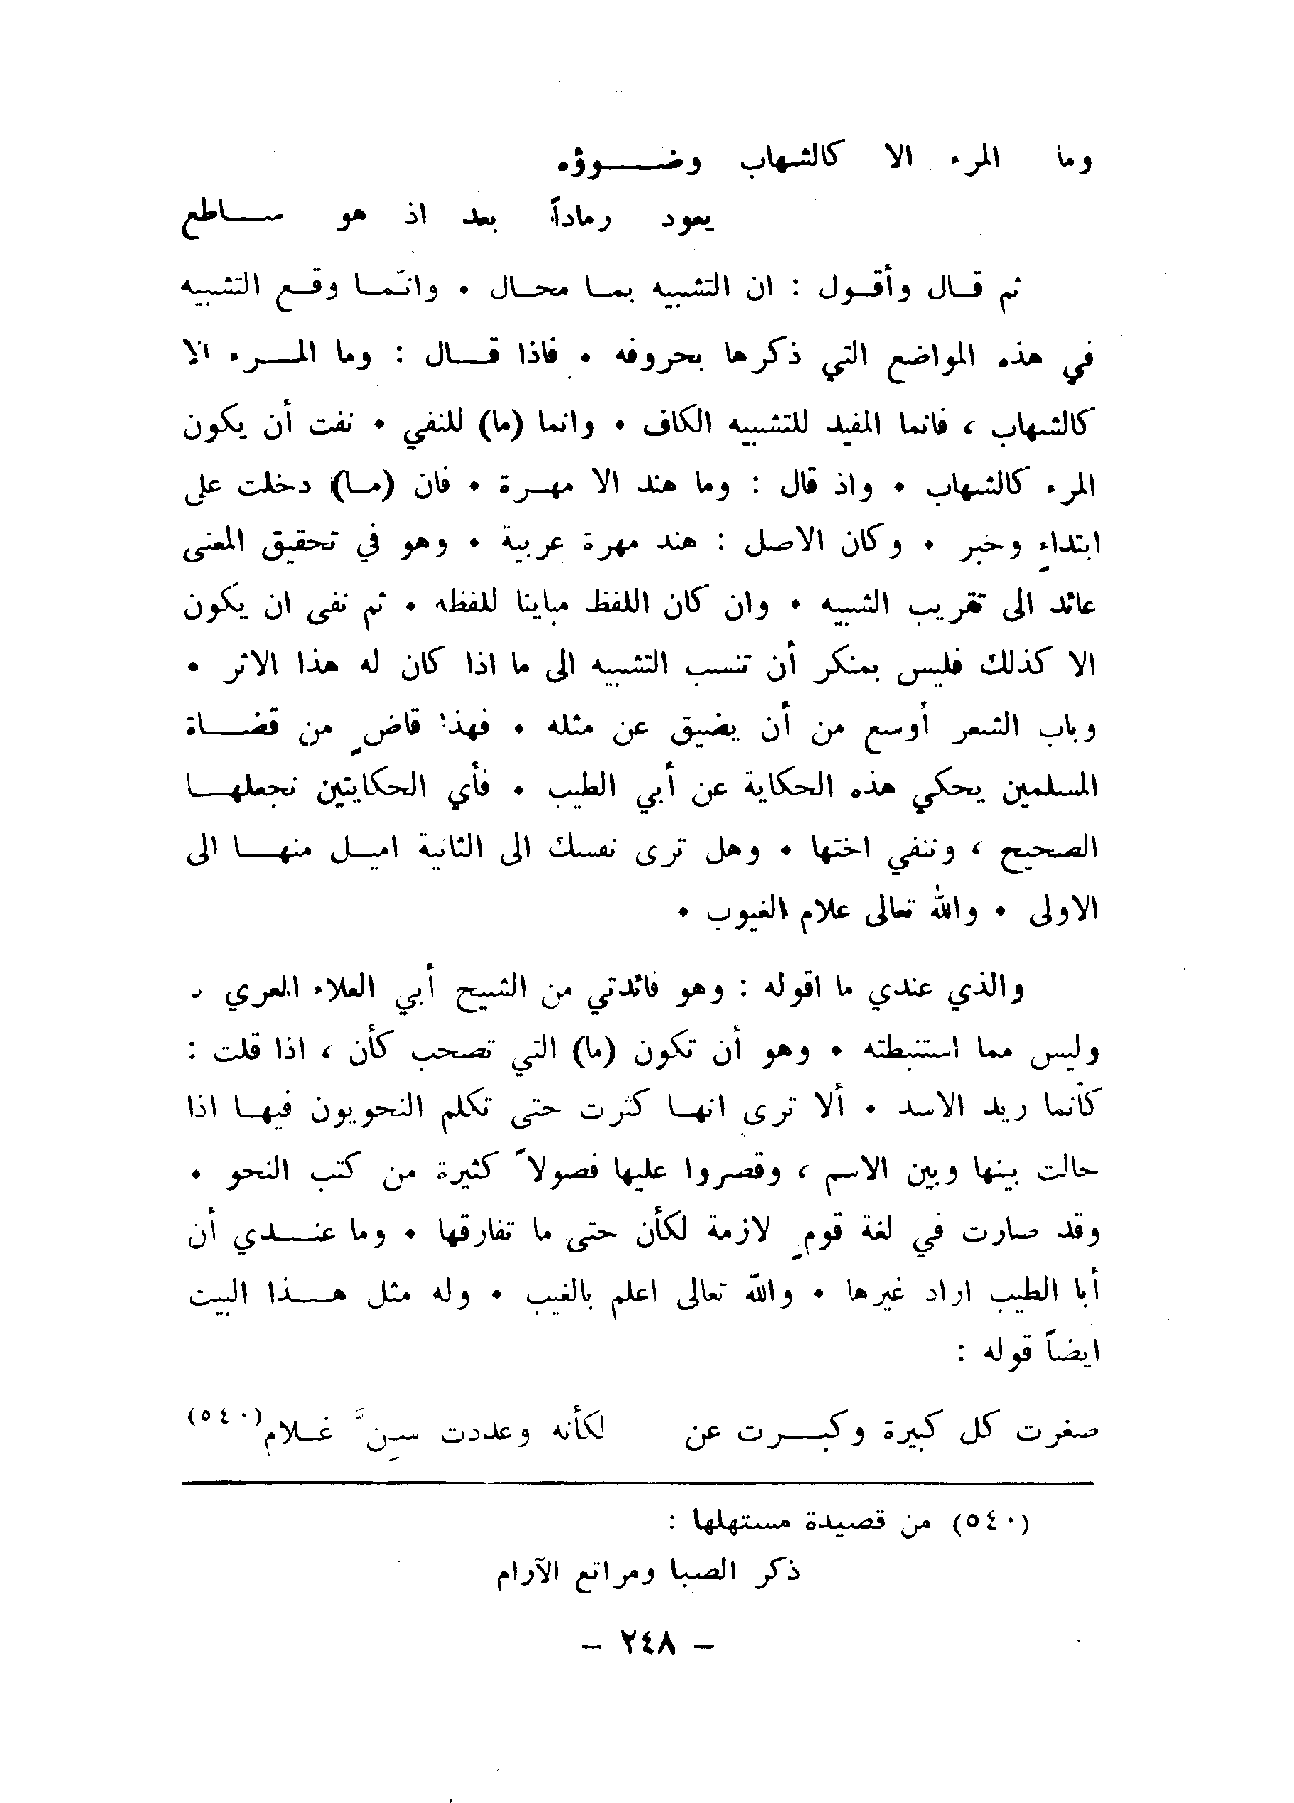 وما المرء الا كالشهاب وضـــوؤه
يعود رماداً بعد اذ هو ســاطع
ثم قـال وأقـول : ان التشبيه بمـا محـال . وانّمـا وقـع التشبيه
في هذه المواضع التي ذكرها بحروفه . فاذا قـال : وما المـرء الا
كالشهاب ، فانما المفيد للتشبيه الكاف . وانما (ما) للنفي . نفت أن يكون
المرء كالشهاب . واذ قال : وما هند الا مهـرة . فان (مـا) دخلت على
ابتداءٍ وخبر . وكان الاصل : هند مهرة عربية . وهو في تحقيق المعنى
عائد الى تقريب الشبيه . وان كان اللفظ مباينا للفظه . ثم نفى ان يكون
الا كذلك فليس بمنكر أن تنسب التشبيه الى ما اذا كان له هذا الاثر .
وباب الشعر أوسع من أن يضيق عن مثله . فهذا قاضٍ من قضــاة
المسلمين يحكي هذه الحكاية عن أبي الطيب . فأي الحكايتين نجعلهـا
الصحيح ، وننفي اختها . وهل ترى نفسك الى الثانية اميـل منهـا الى
الاولى . والله تعالى علام الغيوب .
والذي عندي ما اقوله : وهو فائدتي من الشيح أبي العلاء المعري ـ
وليس مما استنبطته . وهو أن تكون (ما) التي تصحب كأن ، اذا قلت :
كأنما ريد الاسد . ألا ترى انهـا كثرت حتى تكلم النحويون فيهـا اذا
حالت بينها وبين الاسم ، وقصروا عليها فصولاً كثيرة من كتب النحو .
وقد صارت في لغة قومٍ لازمة لكأن حتى ما تفارقها . وما عنــدي أن
أبا الطيب اراد غيرها . والله تعالى اعلم بالغيب . وله مثل هــذا البيت
ايضاً قوله :
صغرت كل كبيرة وكبــرت عن لكأنه وعددت سـن غـلام(٥٤٠)
(٥٤٠) من قصيدة مستهلها :
ذكر الصبا ومراتع الآرام
– ٢٤٨ –